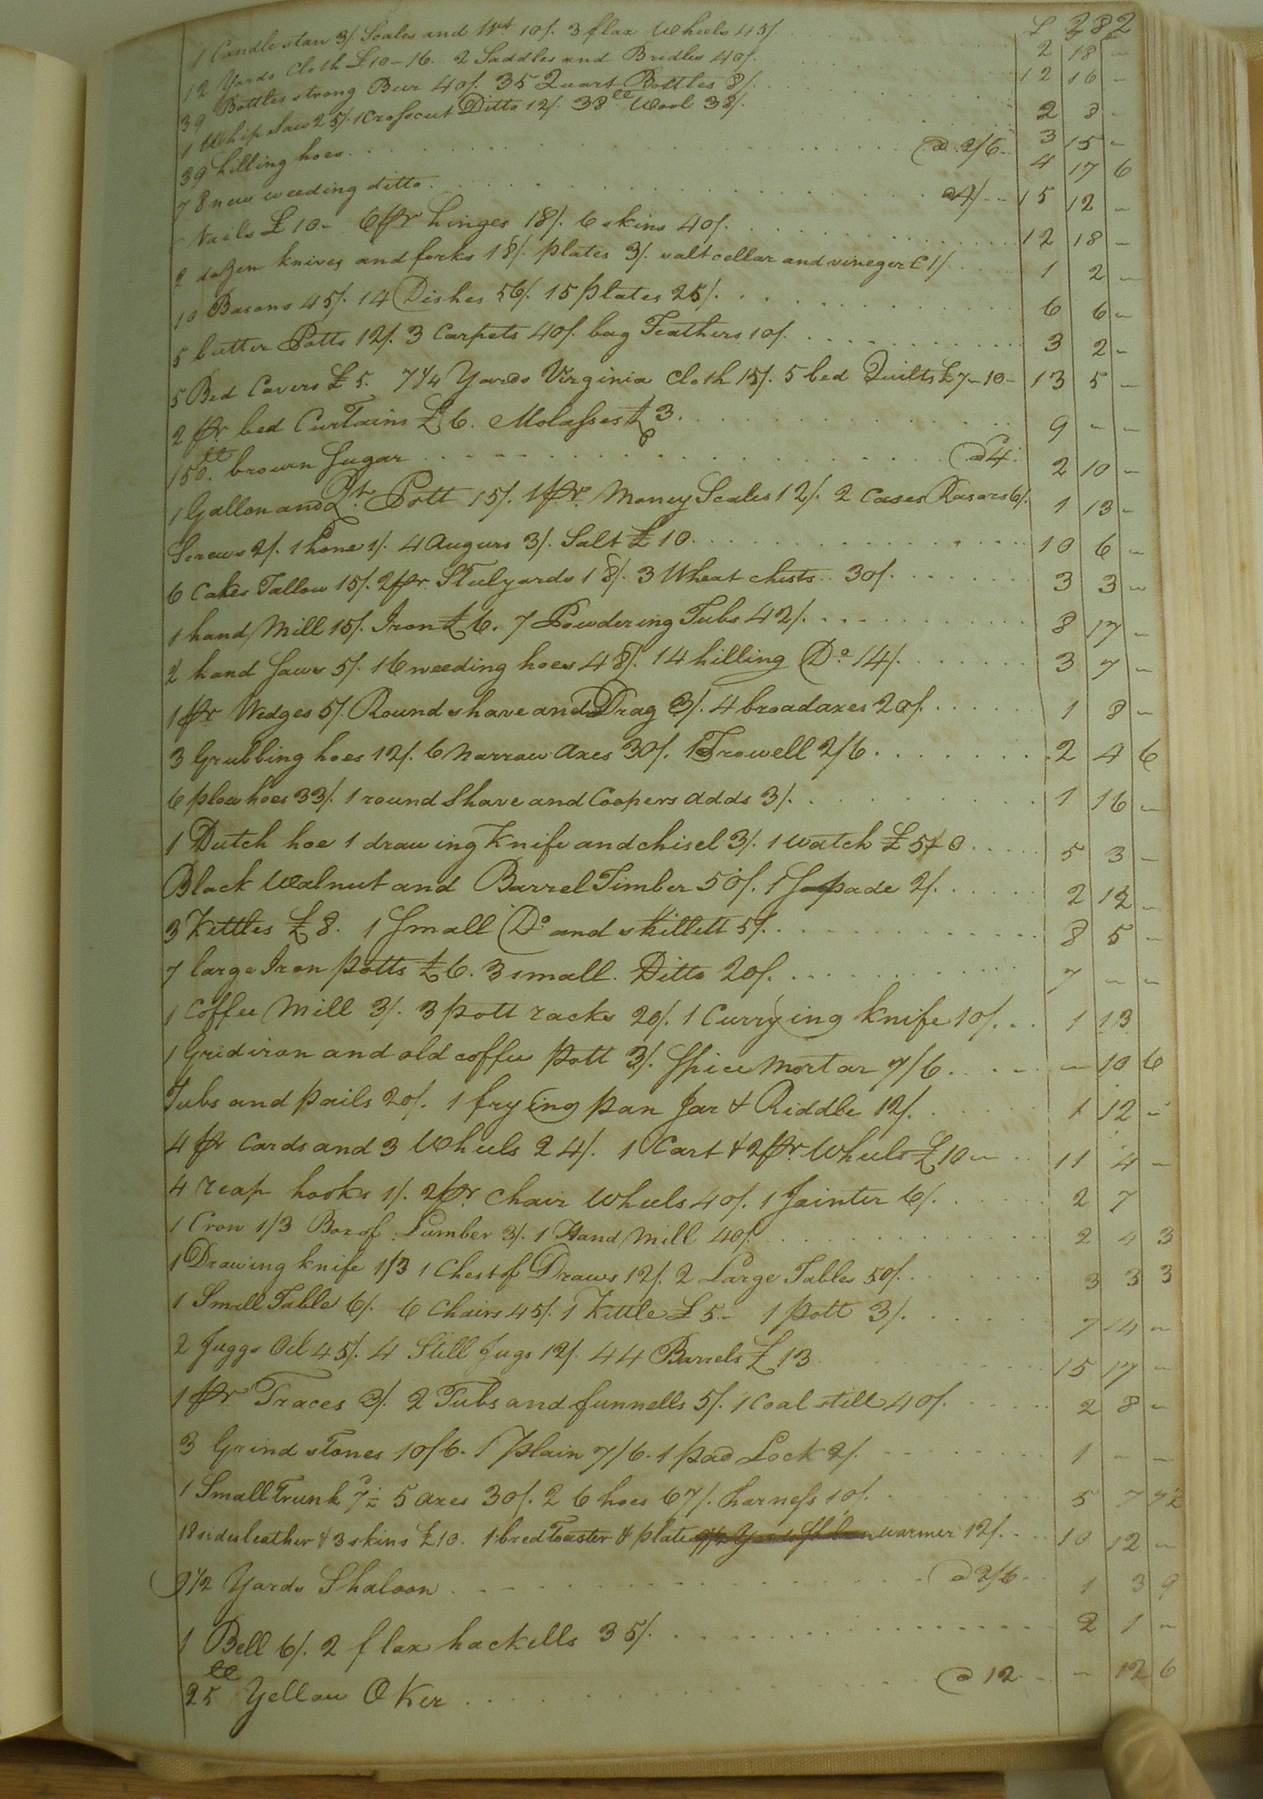 £ 282
1 Candlestan 3/. Scales and Wt 10/. 3 flax Wheels 45/. 2 18 -
12 Yards Cloth £10-16. 2 Saddles and Bridles 40/. 12 16 -
39 Bottles strong Beer 40/. 35 Quart Bottles 8/. 2 8 -
1 Whip Saw 25/. 1 Crosscut Ditto 12/. 38 lb Wool 38/. 3 15 -
39 hilling hoes @ 2/6 4 17 6
78 new weeding ditto @ 4/ 15 12 -
Nails £10- 6 pr hinges 18/. 6 skins 40/. 12 18 -
2 dozen knives and forks 18/. plates 3/. saltcellar and vineger C 1/. 1 2 -
10 Basons 45/. 14 Dishes 56/. 15 plates 25/. 6 6 -
5 butter Potts 12/. 3 Carpets 40/. bag Feathers 10/. 3 2 -
5 Bed Covers £5. 7 1/4 Yards Virginia Cloth 15/. 5 bed Quilts £7-10- 13 5 -
2 pr bed Curtains £6. Molasses £3. 9 - -
150 lb. brown Sugar @ 4d 2 10 -
1 Gallon and Qt. Pott 15/. 1 pr. Money Scales 12/. 2 Cases Rasors 6/. 1 13 -
Screws 2/. 1 hone 1/. 4 Augurs 3/. Salt £10 10 6 -
6 Cakes Tallow 15/. 2 pr. Stilyards 18/. 3 Wheat chests 30/. 3 3 -
1 hand Mill 15/. Iron £6. 7 Powdering Tubs 42/. 8 17 -
2 hand Saws 5/. 16 weeding hoes 48/. 14 hilling Do. 14/. 3 7 -
1 pr Wedges 5/. Round shave and Drag 3/. 4 broadaxes 20/. 1 8 -
3 Grubbing hoes 12/. 6 narrow Axes 30/. 1 Trowell 2/6 2 4 6
6 plow hoes 33/. 1 round Shave and Coopers adds 3/. 1 16 -
1 Dutch hoe 1 drawing Knife and chisel 3/. 1 watch £5 5 3 -
Black Walnut and Barrel Timber 50/. 1 Spade 2/. 2 12 -
3 Kettles £8. 1 Small Do and skillett 5/. 8 5 -
7 large Iron potts £6. 3 small Ditto 20/. 7 - -
1 Coffee Mill 3/. 3 pott racks 20/. 1 Currying Knife 10/. 1 13
1 Gridiron and old coffee pott 3/. Spice mortar 7/6 - 10 6
Tubs and pails 20/. 1 frying pan Jar & Riddle 12/. 1 12 -
4 pr Cards and 3 Wheels 24/. 1 Cart & 2 pr. Wheels £10- 11 4 -
4 reap hooks 1/. 2 pr. Chair Wheels 40/. 1 Jointer 6/. 2 7
1 Crow 1/3 Box of Lumber 3/. 1 Hand Mill 40/. 2 4 3
1 Drawing knife 1/3 1 Chest of Draws 12/. 2 Large Tables 50/. 3 3 3
1 Small Table 6/. 6 Chairs 45/. 1 Kettle £5- 1 pott 3/. 7 14 -
2 Juggs Oil 45/. 4 Still Jugs 12/. 44 Barrels £13 15 17 -
1 pr Traces 3/. 2 Tubs and funnells 5/. 1 Coal still 40/. 2 8 -
3 Grind stones 10/6. 1 plain 7/6. 1 pad Lock 2/. 1 - -
1 Small Trunk 5 axes 30/. 26 hoes 67/. harness 10/. 5 7
18 sides leather & 3 skins £10. 1 bred Toaster & plate warmer 12/. 10 12 -
9 1/2 Yards Shaloon @ 2/6 1 3 9
1 Bell 6/. 2 flax hackells 35/. 2 1 -
25 lb Yellow Oker @ 12 - 12 6